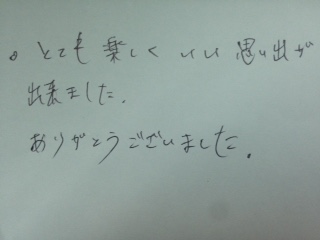 。とても楽しくいい思い出が
出来ました。
ありがとうございました。